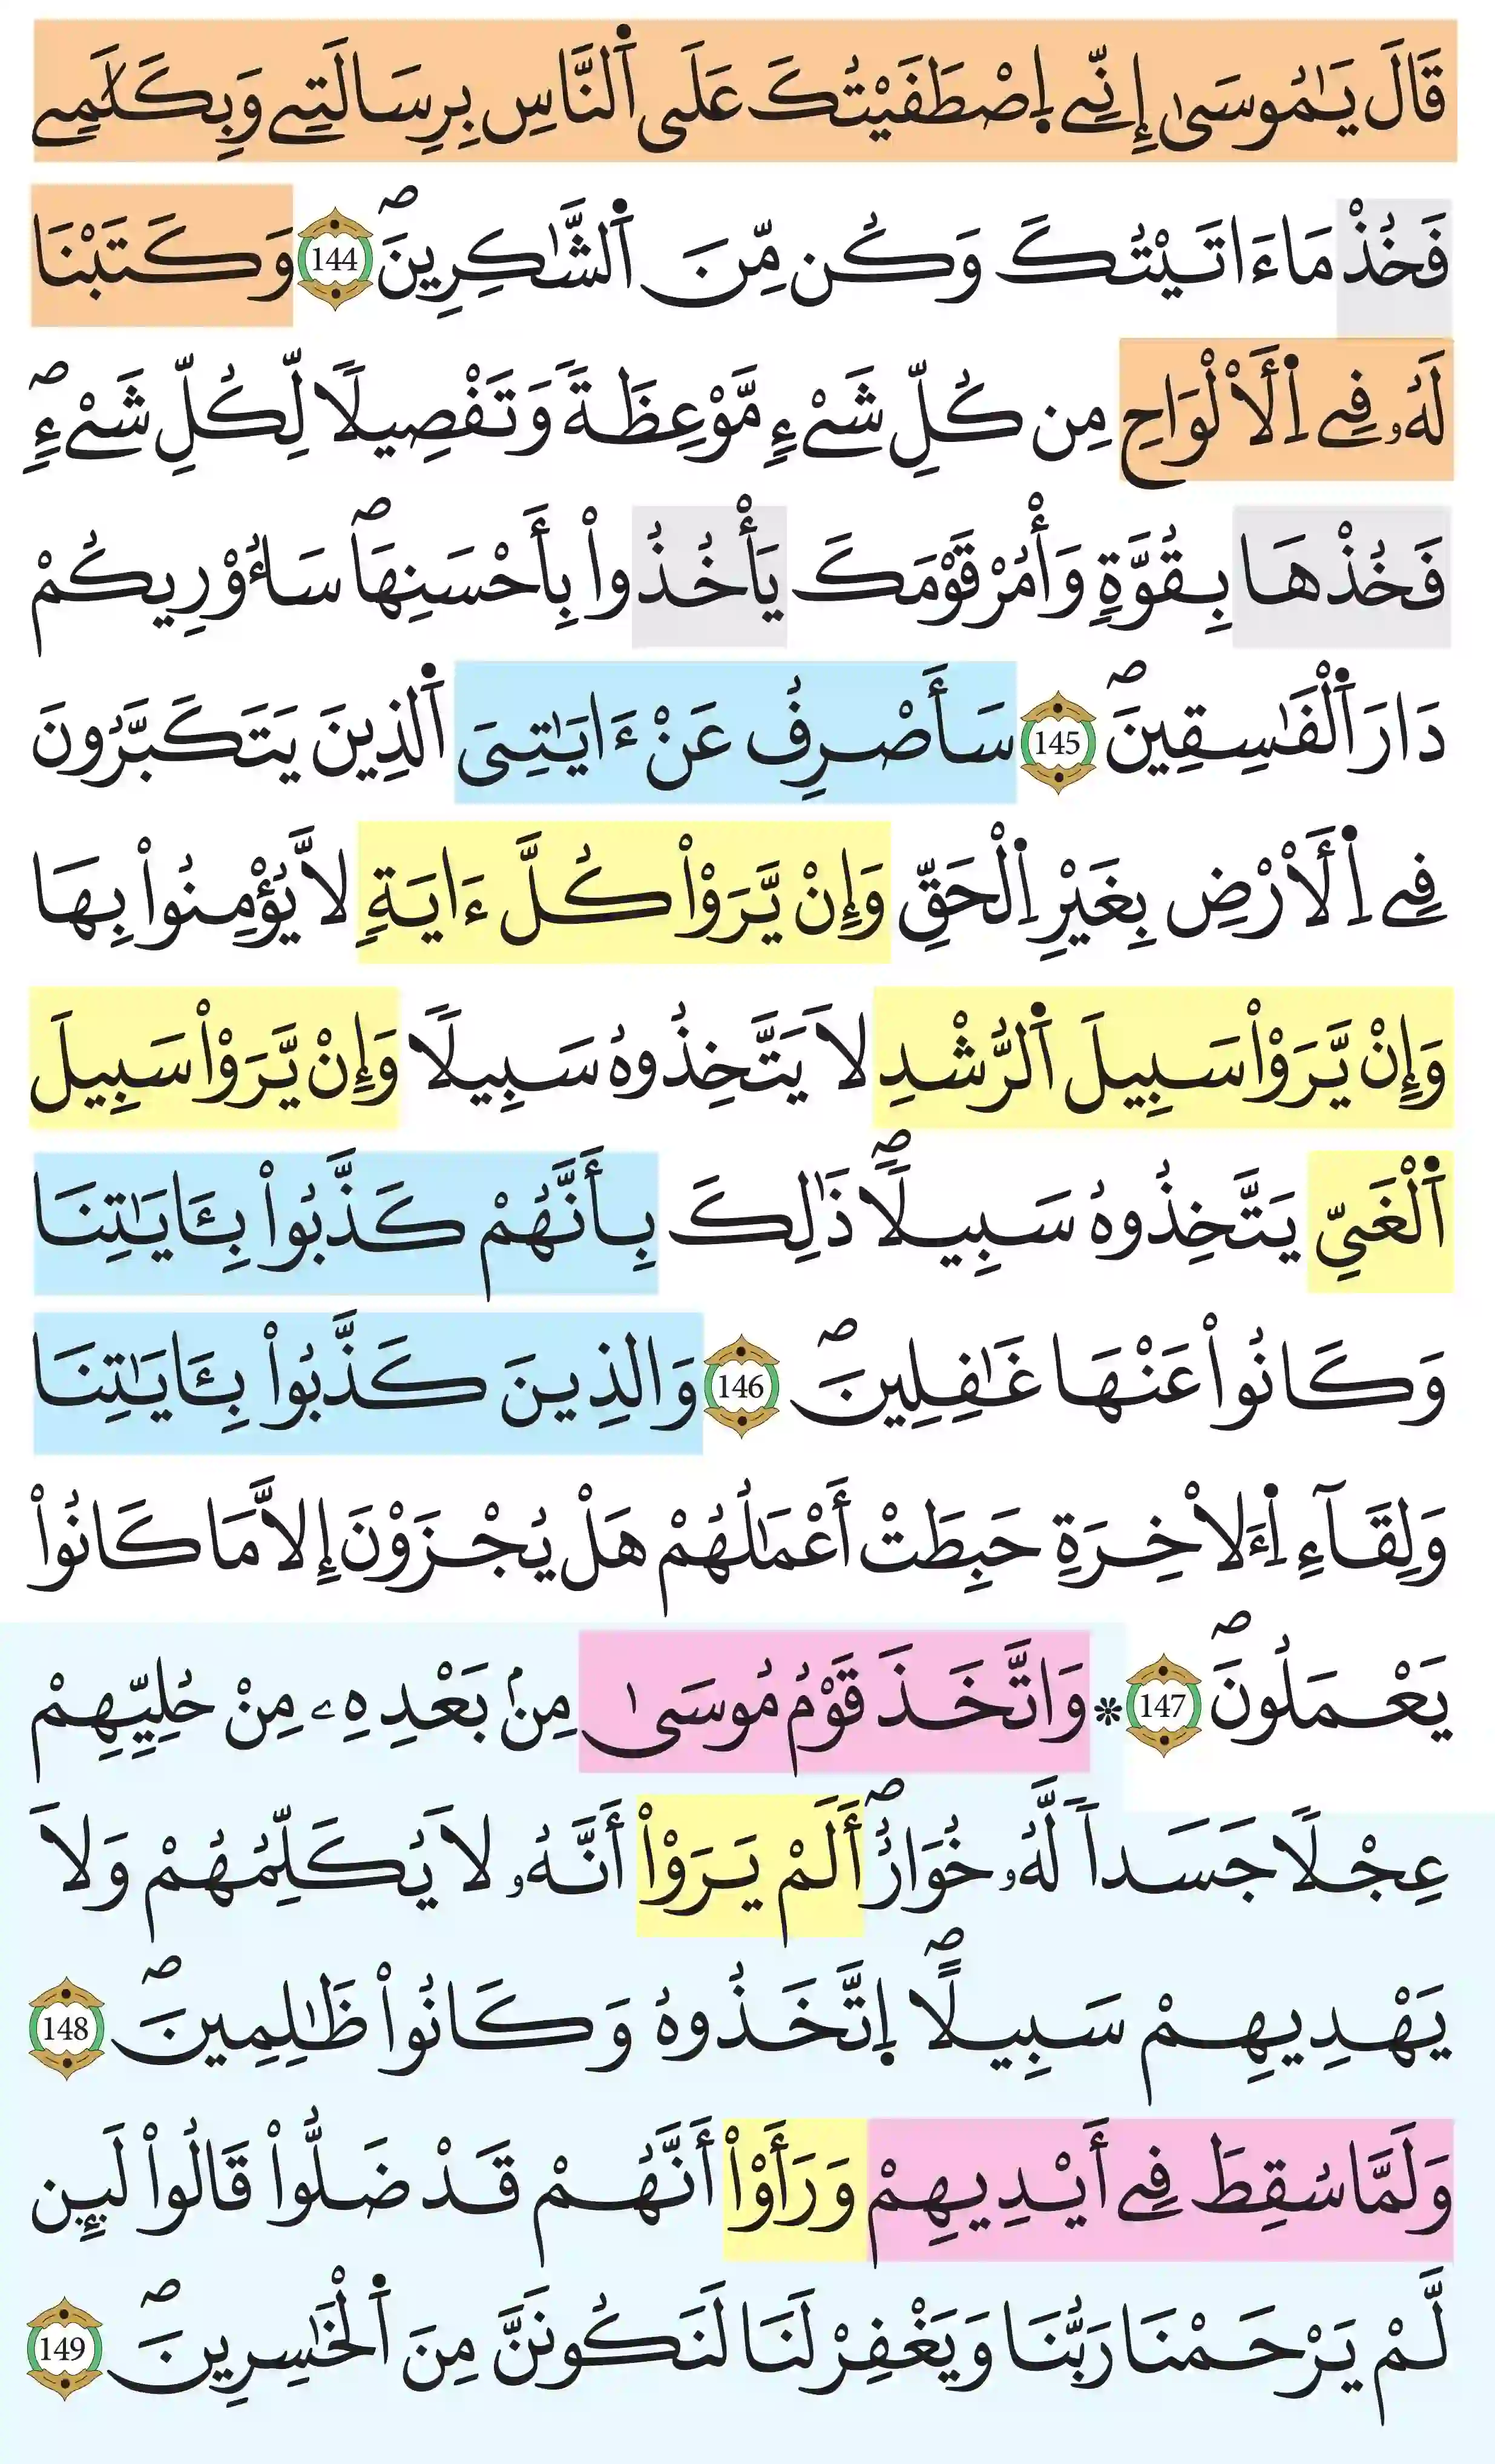 قَالَ يَٰمُوسَىٰ إِنِّے اِ۪صْطَفَيْتُكَ عَلَى اَ۬لنَّاسِ بِرِسَالَتِے وَبِكَلَٰمِے
فَخُذْ مَا ءَاتَيْتُكَ وَكُن مِّنَ اَ۬لشَّٰكِرِينَۖ 144 وَكَتَبْنَا
لَهُۥ فِے اِ۬لَالْوَاحِ مِن كُلِّ شَےْءٖ مَّوْعِظَةٗ وَتَفْصِيلاٗ لِّكُلِّ شَےْءٖۖ
فَخُذْهَا بِقُوَّةٖ وَأْمُرْ قَوْمَكَ يَأْخُذُواْ بِأَحْسَنِهَاۖ سَأُوْرِيكُمْ
دَارَ اَ۬لْفَٰسِقِينَۖ 145 سَأَصْرِفُ عَنْ ءَايَٰتِىَ اَ۬لذِينَ يَتَكَبَّرُونَ
فِے اِ۬لَارْضِ بِغَيْرِ اِ۬لْحَقِّ وَإِنْ يَّرَوْاْ كُلَّ ءَايَةٖ لَّا يُؤْمِنُواْ بِهَا
وَإِنْ يَّرَوْاْ سَبِيلَ اَ۬لرُّشْدِ لَا يَتَّخِذُوهُ سَبِيلاٗ وَإِنْ يَّرَوْاْ سَبِيلَ
اَ۬لْغَىِّ يَتَّخِذُوهُ سَبِيلاٗۖ ذَٰلِكَ بِأَنَّهُمْ كَذَّبُواْ بِـَٔايَٰتِنَا
وَكَانُواْ عَنْهَا غَٰفِلِينَۖ 146 وَالذِينَ كَذَّبُواْ بِـَٔايَٰتِنَا
وَلِقَآءِ اِ۬لَاخِرَةِ حَبِطَتْ أَعْمَٰلُهُمْ هَلْ يُجْزَوْنَ إِلَّا مَا كَانُواْ
يَعْمَلُونَۖ 147 * وَاتَّخَذَ قَوْمُ مُوسَىٰ مِنۢ بَعْدِهِۦ مِنْ حُلِيِّهِمْ
عِجْلاٗ جَسَداٗ لَّهُۥ خُوَارٌۖ أَلَمْ يَرَوْاْ أَنَّهُۥ لَا يُكَلِّمُهُمْ وَلَا
يَهْدِيهِمْ سَبِيلاًۖ اِ۪تَّخَذُوهُ وَكَانُواْ ظَٰلِمِينَۖ 148
وَلَمَّا سُقِطَ فِے أَيْدِيهِمْ وَرَأَوْاْ أَنَّهُمْ قَدْ ضَلُّواْ قَالُواْ لَئِن
لَّمْ يَرْحَمْنَا رَبُّنَا وَيَغْفِرْ لَنَا لَنَكُونَنَّ مِنَ اَ۬لْخَٰسِرِينَۖ 149